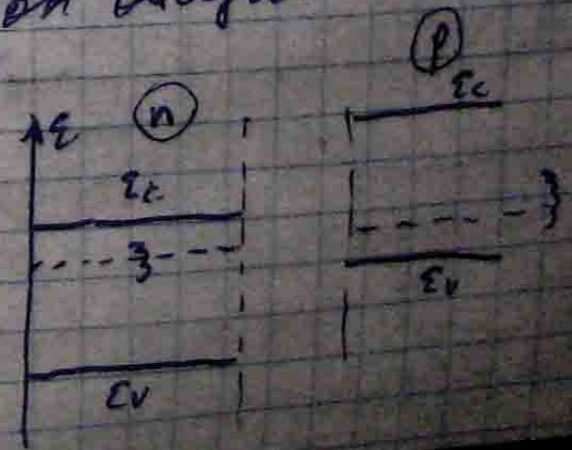 ε n
εc
ζ
εv
p
εc
ζ
εv